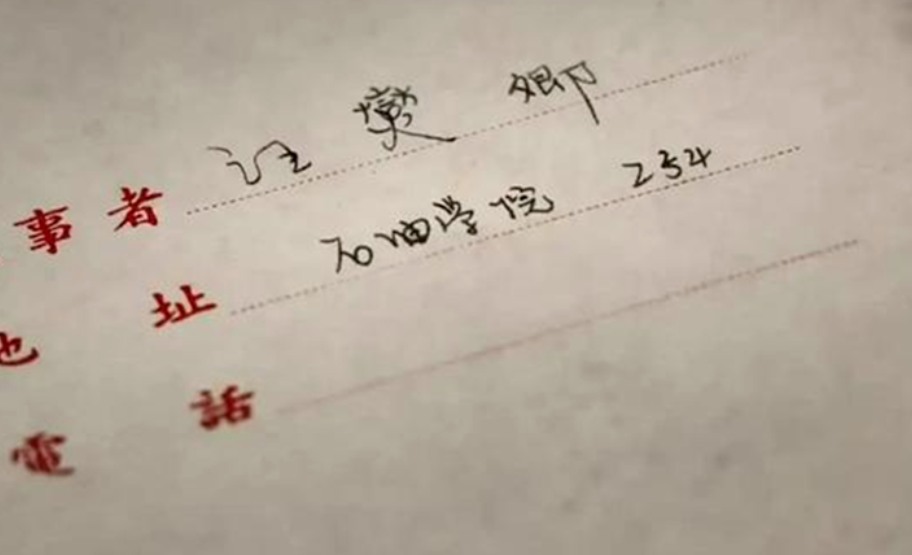 事者 汪燮卿
地址 石油学院 254
電話